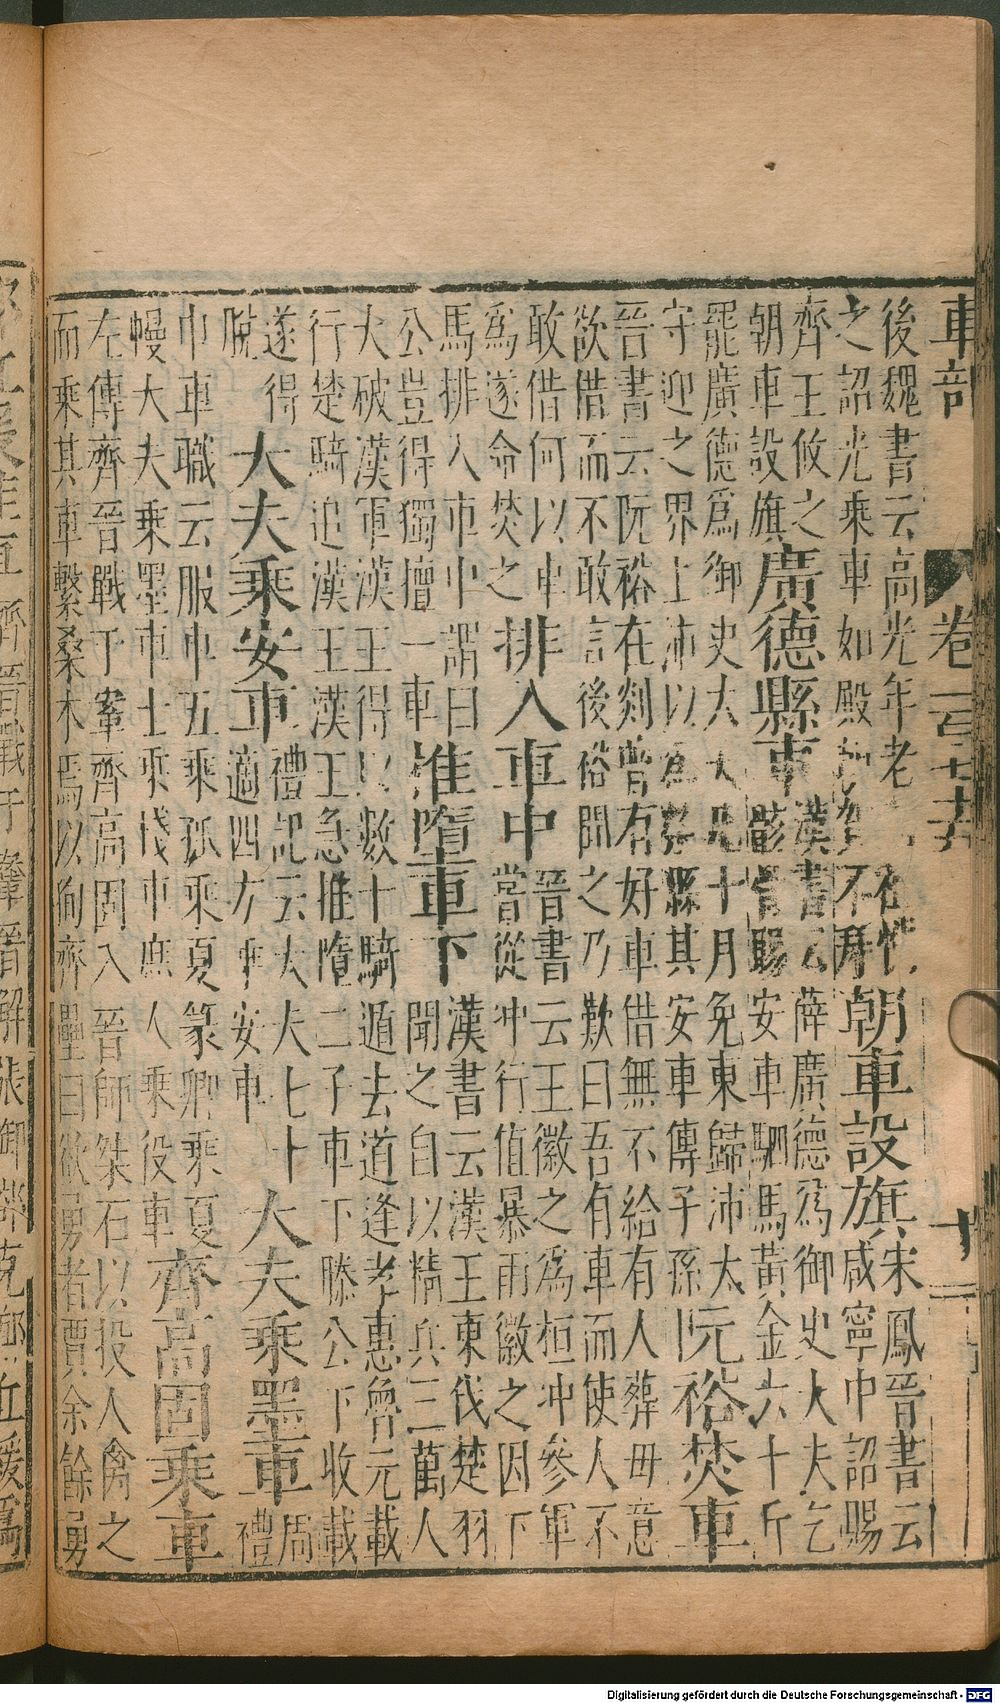 車部 卷一百七十 十二
後魏書云高光年老
之詔光乘車如殿不拜
朝車設旗
宋鳳晉書云
咸寧中詔賜
齊王攸之
朝車設旗
廣德縣車
漢書云薛廣德爲御史大夫乞
骸骨賜安車駟馬黃金六十斤
罷廣德爲御史大夫凡十月免東歸沛太
守迎之界上沛以爲榮縣其安車傳子孫
阮裕焚車
晉書云阮裕在剡曾有好車借無不給有人葬母意
欲借而不敢言後裕聞之乃歎曰吾有車而使人不
敢借何以車
爲遂命焚之
排入車中
晉書云王徽之爲桓冲參軍
嘗從冲行值暴雨徽之因下
馬排入車中謂曰
公豈得獨擅一車
推墮車下
漢書云漢王東伐楚羽
聞之自以精兵三萬人
大破漢軍漢王得以數十騎遁去道逢孝惠魯元載
行楚騎追漢王漢王急推墮二子車下滕公下收載
遂得
脫
大夫乘安車
禮記云大夫七十
適四方乘安車
大夫乘墨車
周
禮
巾車職云服車五乘孤乘夏篆卿乘夏
幔大夫乘墨車士乘棧車庶人乘役車
齊高固乘車
左傳齊晉戰于鞌齊高固入晉師桀石以投人禽之
而乘其車繫桑本焉以徇齊壘曰欲勇者賈余餘勇
Digitalisierung gefördert durch die Deutsche Forschungsgemeinschaft - DFG